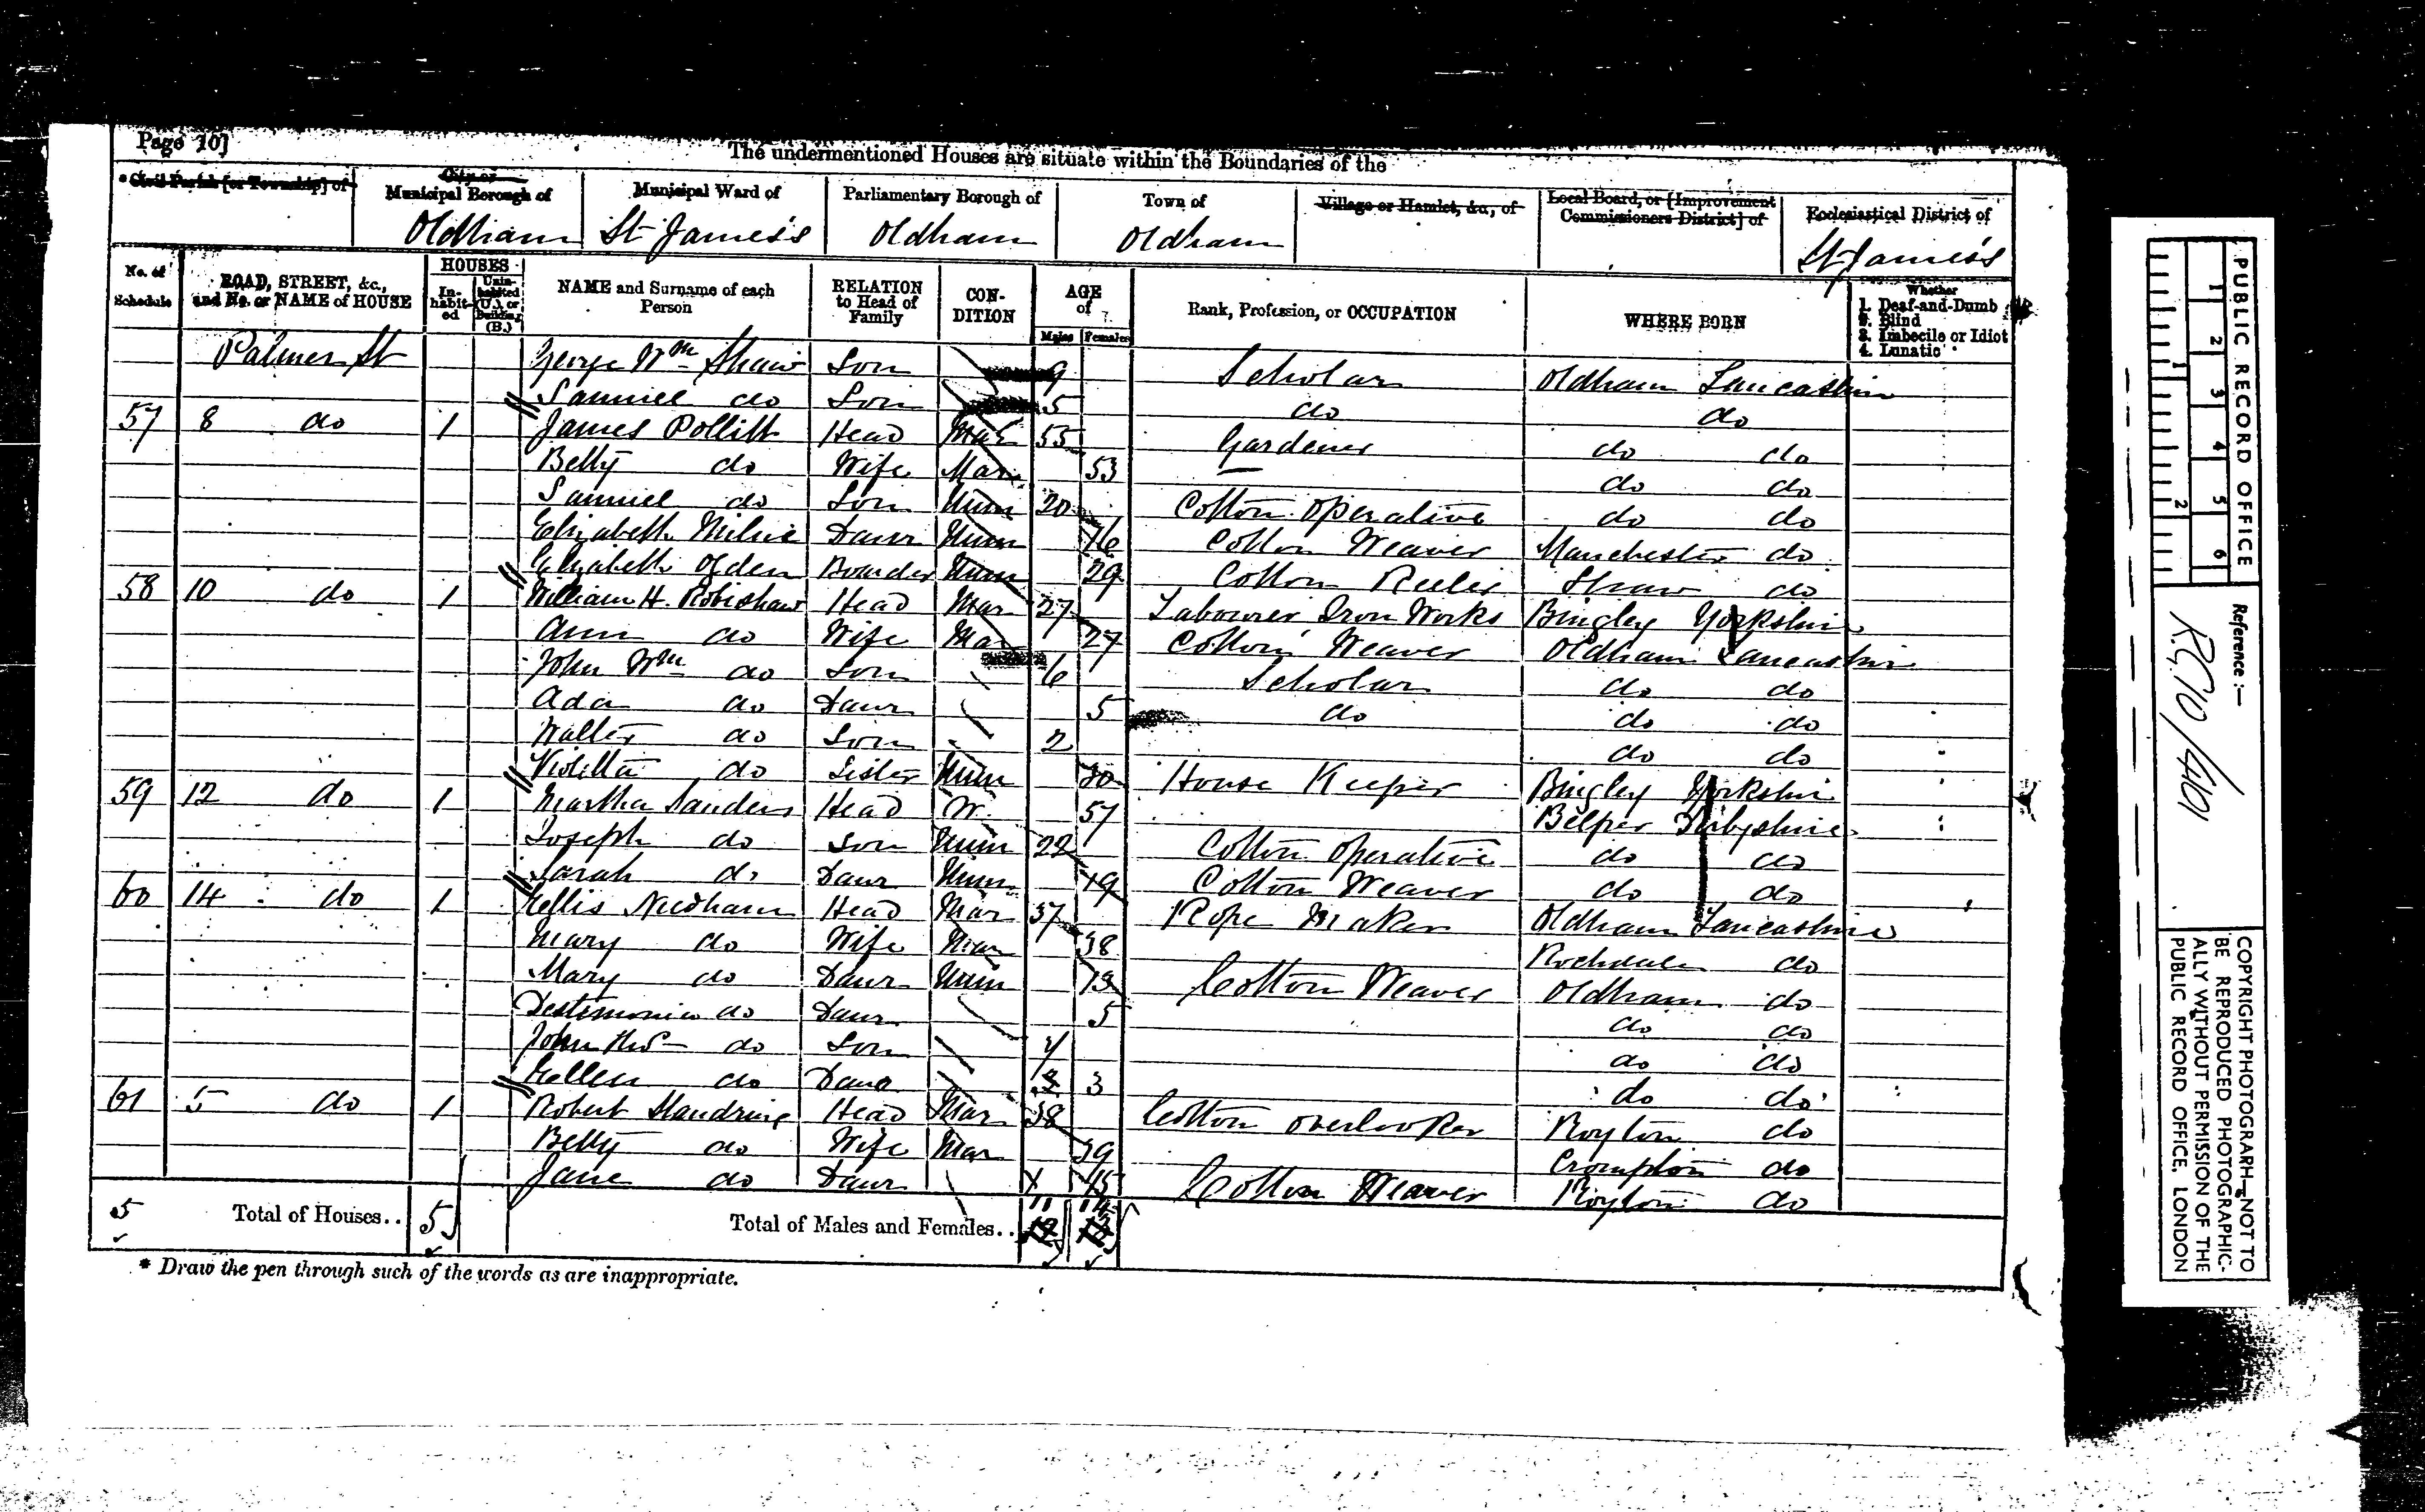 Page 10]
The undermentioned Houses are situate within the Boundaries of the
* Civil Parish [or Township] of
City or Municipal Borough of
Oldham
Municipal Ward of
St James's
Parliamentary Borough of
Oldham
Town of
Oldham
Village or Hamlet, &c., of
Local Board, or [Improvement Commissioners District] of
Ecclesiastical District of
St James's
No. of Schedule
ROAD, STREET, &c., and No. or NAME of HOUSE
HOUSES
In-habit-ed
Unin-habited (U.), or Building (B.)
NAME and Surname of each Person
RELATION to Head of Family
CON-DITION
AGE of
Males
Females
Rank, Profession, or OCCUPATION
WHERE BORN
Whether
1. Deaf-and-Dumb
2. Blind
3. Imbecile or Idiot
4. Lunatic
Palmer St George Wm Shaw Son 9 Scholar Oldham Lancashire
Samuel do Son 5 do do
57 8 do 1 James Pollitt Head Mar 55 Gardener do do
Betty do Wife Mar 53 — do do
Samuel do Son Unm 20 Cotton operative do do
Elizabeth Milne Daur Unm 16 Cotton Weaver Manchester do
Elizabeth Ogden Boarder Unm 29 Cotton Reeler Shaw do
58 10 do 1 William H. Robishaw Head Mar 27 Labourer Iron Works Bingley Yorkshire
Ann do Wife Mar 27 Cotton Weaver Oldham Lancashire
John Wm do Son 6 Scholar do do
Ada do Daur 5 do do do
Walter do Son 2 do do
Violetta do Sister Unm 30 House Keeper Bingley Yorkshire
59 12 do 1 Martha Sanders Head W. 57 Belper Derbyshire
Joseph do Son Unm 22 Cotton operative do do
Sarah do Daur Unm 19 Cotton Weaver do do
60 14 do 1 Ellis Needham Head Mar 37 Rope Maker Oldham Lancashire
Mary do Wife Mar 38 Rochdale do
Mary do Daur Unm 13 Cotton Weaver Oldham do
Destimonia do Daur 5 do do
John Thos do Son 4 do do
Ellen do Daur 3 do do
61 5 do 1 Robert Standring Head Mar 38 Cotton overlooker Royton do
Betty do Wife Mar 39 Crompton do
Jane do Daur 15 Cotton Weaver Royton do
5 Total of Houses.. 5 Total of Males and Females.. 11 14
* Draw the pen through such of the words as are inappropriate.
PUBLIC RECORD OFFICE
1 2 3 4 5 6
1 2
Reference :—
RG10/4101
COPYRIGHT PHOTOGRAPH—NOT TO
BE REPRODUCED PHOTOGRAPHIC-
ALLY WITHOUT PERMISSION OF THE
PUBLIC RECORD OFFICE, LONDON